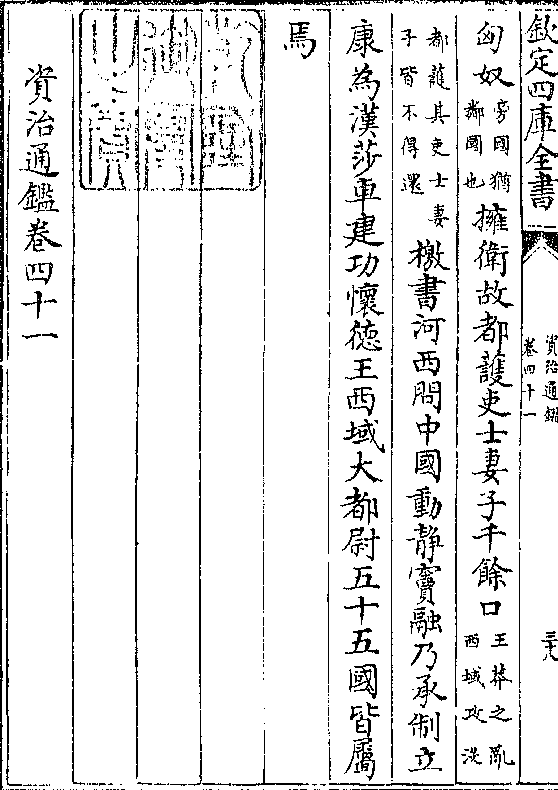 欽定四庫全書
資治通鑑
卷四十一
三十八
匈奴旁國猶鄰國也擁衛故都護吏士妻子千餘口王莽之亂西域攻沒
都護其吏士妻子皆不得還檄書河西問中國動靜竇融乃承制立
康為漢莎車建功懷德王西域大都尉五十五國皆屬
焉
資治通鑑卷四十一